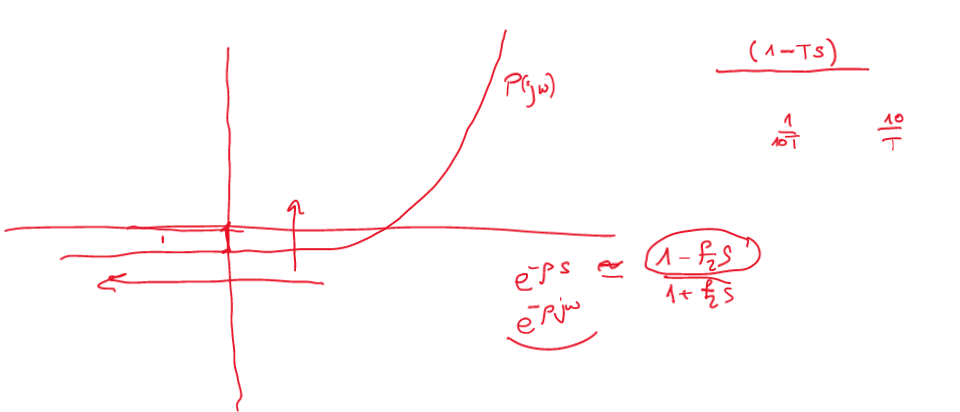 P(jω)
(1-Ts)
1/10T 10/T
e^-ρs ≃ (1 - ρ/2 s)/(1 + ρ/2 s)
e^-ρjω